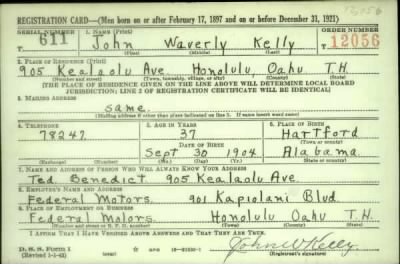 REGISTRATION CARD—(Men born on or after February 17, 1897 and on or before December 31, 1921)
SERIAL NUMBER 1. NAME (Print) ORDER NUMBER
611 John Waverly Kelly 12056
(First) (Middle) (Last)
2. PLACE OF RESIDENCE (Print)
905 Kealaolu Ave Honolulu Oahu T.H.
(Number and street) (Town, township, village, or city) (County) (State)
[THE PLACE OF RESIDENCE GIVEN ON THE LINE ABOVE WILL DETERMINE LOCAL BOARD
JURISDICTION; LINE 2 OF REGISTRATION CERTIFICATE WILL BE IDENTICAL]
3. MAILING ADDRESS
same.
[Mailing address if other than place indicated on line 2. If same insert word same]
4. TELEPHONE 5. AGE IN YEARS 6. PLACE OF BIRTH
78247 37 Hartford
DATE OF BIRTH (Town or county)
Sept 30 1904 Alabama.
(Mo.) (Day) (Yr.) (State or country)
7. NAME AND ADDRESS OF PERSON WHO WILL ALWAYS KNOW YOUR ADDRESS
Ted Benedict 905 Kealaolu Ave.
8. EMPLOYER'S NAME AND ADDRESS
Federal Motors. 901 Kapiolani Blvd
9. PLACE OF EMPLOYMENT OR BUSINESS
Federal Motors Honolulu Oahu T.H.
(Number and street or R. F. D. number) (Town) (County) (State)
I AFFIRM THAT I HAVE VERIFIED ABOVE ANSWERS AND THAT THEY ARE TRUE.
D. S. S. FORM 1
(Revised 1-1-42) John W Kelly
(Registrant's signature)